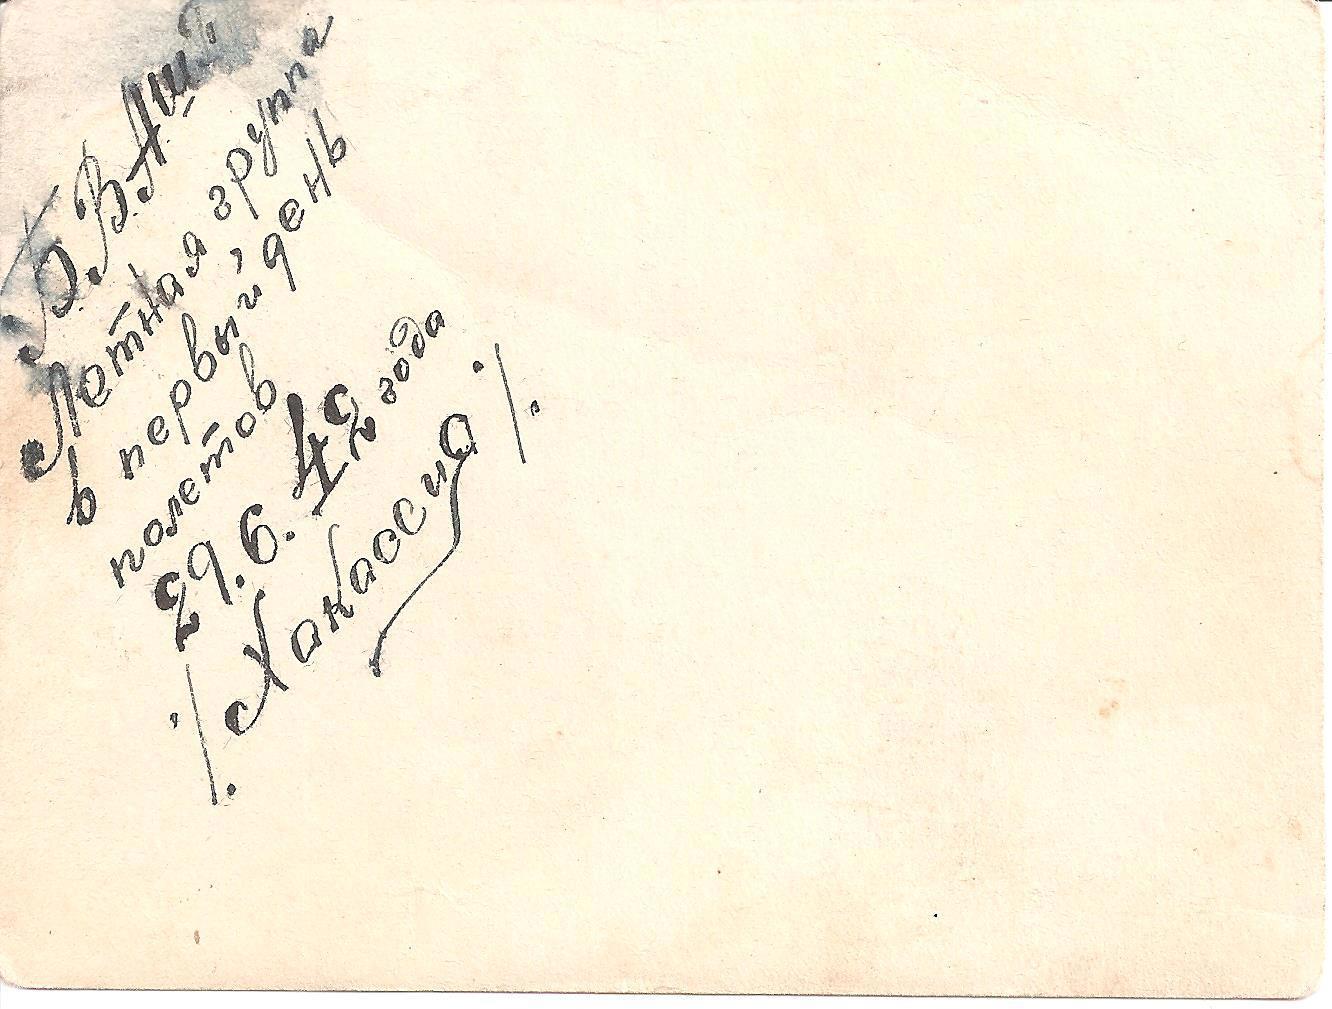 Б.В.АШП
Летная группа
в первый день
полетов
29.6.42 года
/Хакассия/